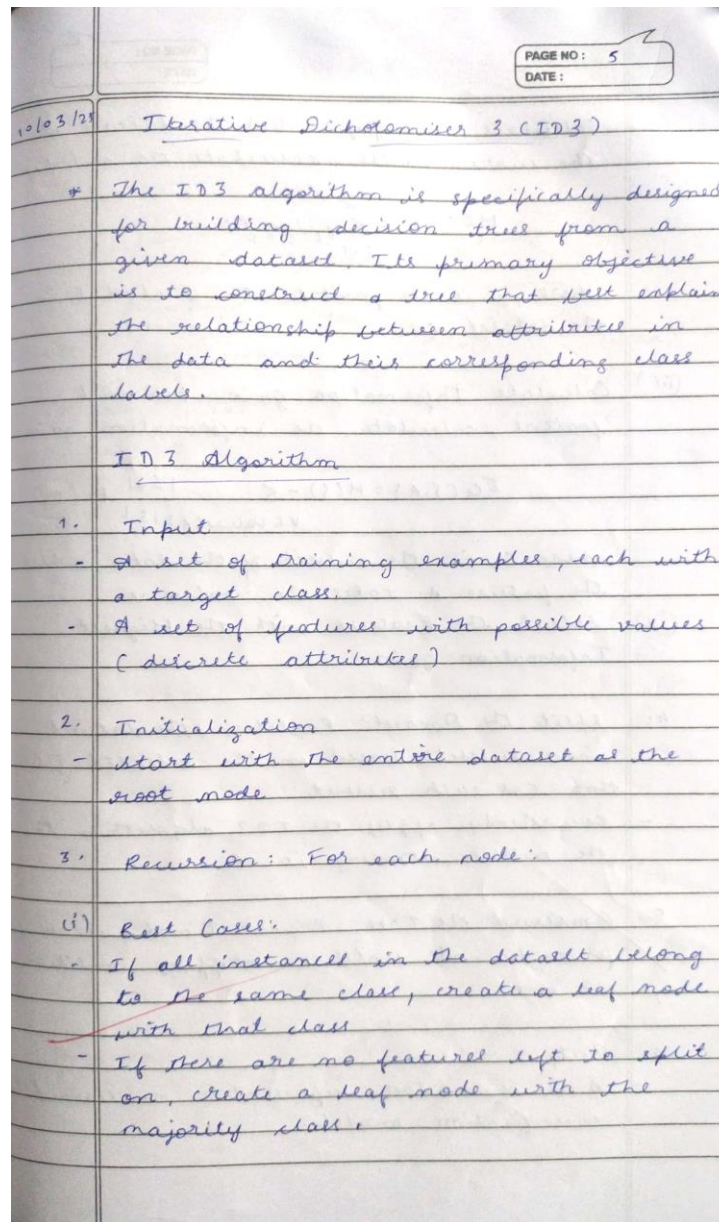 PAGE NO: 5
DATE:
10/03/25
Iterative Dichotomiser 3 (ID3)
* The ID3 algorithm is specifically designed
for building decision trees from a
given dataset. Its primary objective
is to construct a tree that best explain
the relationship between attributes in
the data and their corresponding class
labels.
ID3 Algorithm
1. Input
- A set of training examples, each with
a target class.
- A set of features with possible values
(discrete attributes)
2. Initialization
- start with the entire dataset as the
root node
3. Recursion: For each node:
(i) Best Cases:
- If all instances in the dataset belong
to the same class, create a leaf node
with that class
- If there are no features left to split
on, create a leaf node with the
majority class.